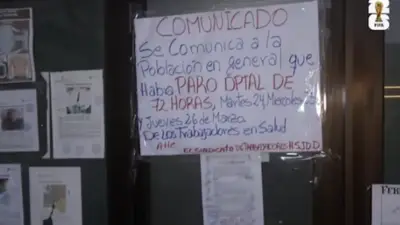 COMUNICADO
Se Comunica a la
Población en general que
Habra PARO DPTAL DE
72 HORAS, Martes 24, Miercoles 25
y Jueves 26 de Marzo
De Los Trabajadores en Salud
Att. EL SINDICATO DE TRABAJADORES H.S.J.D.D
FIFA